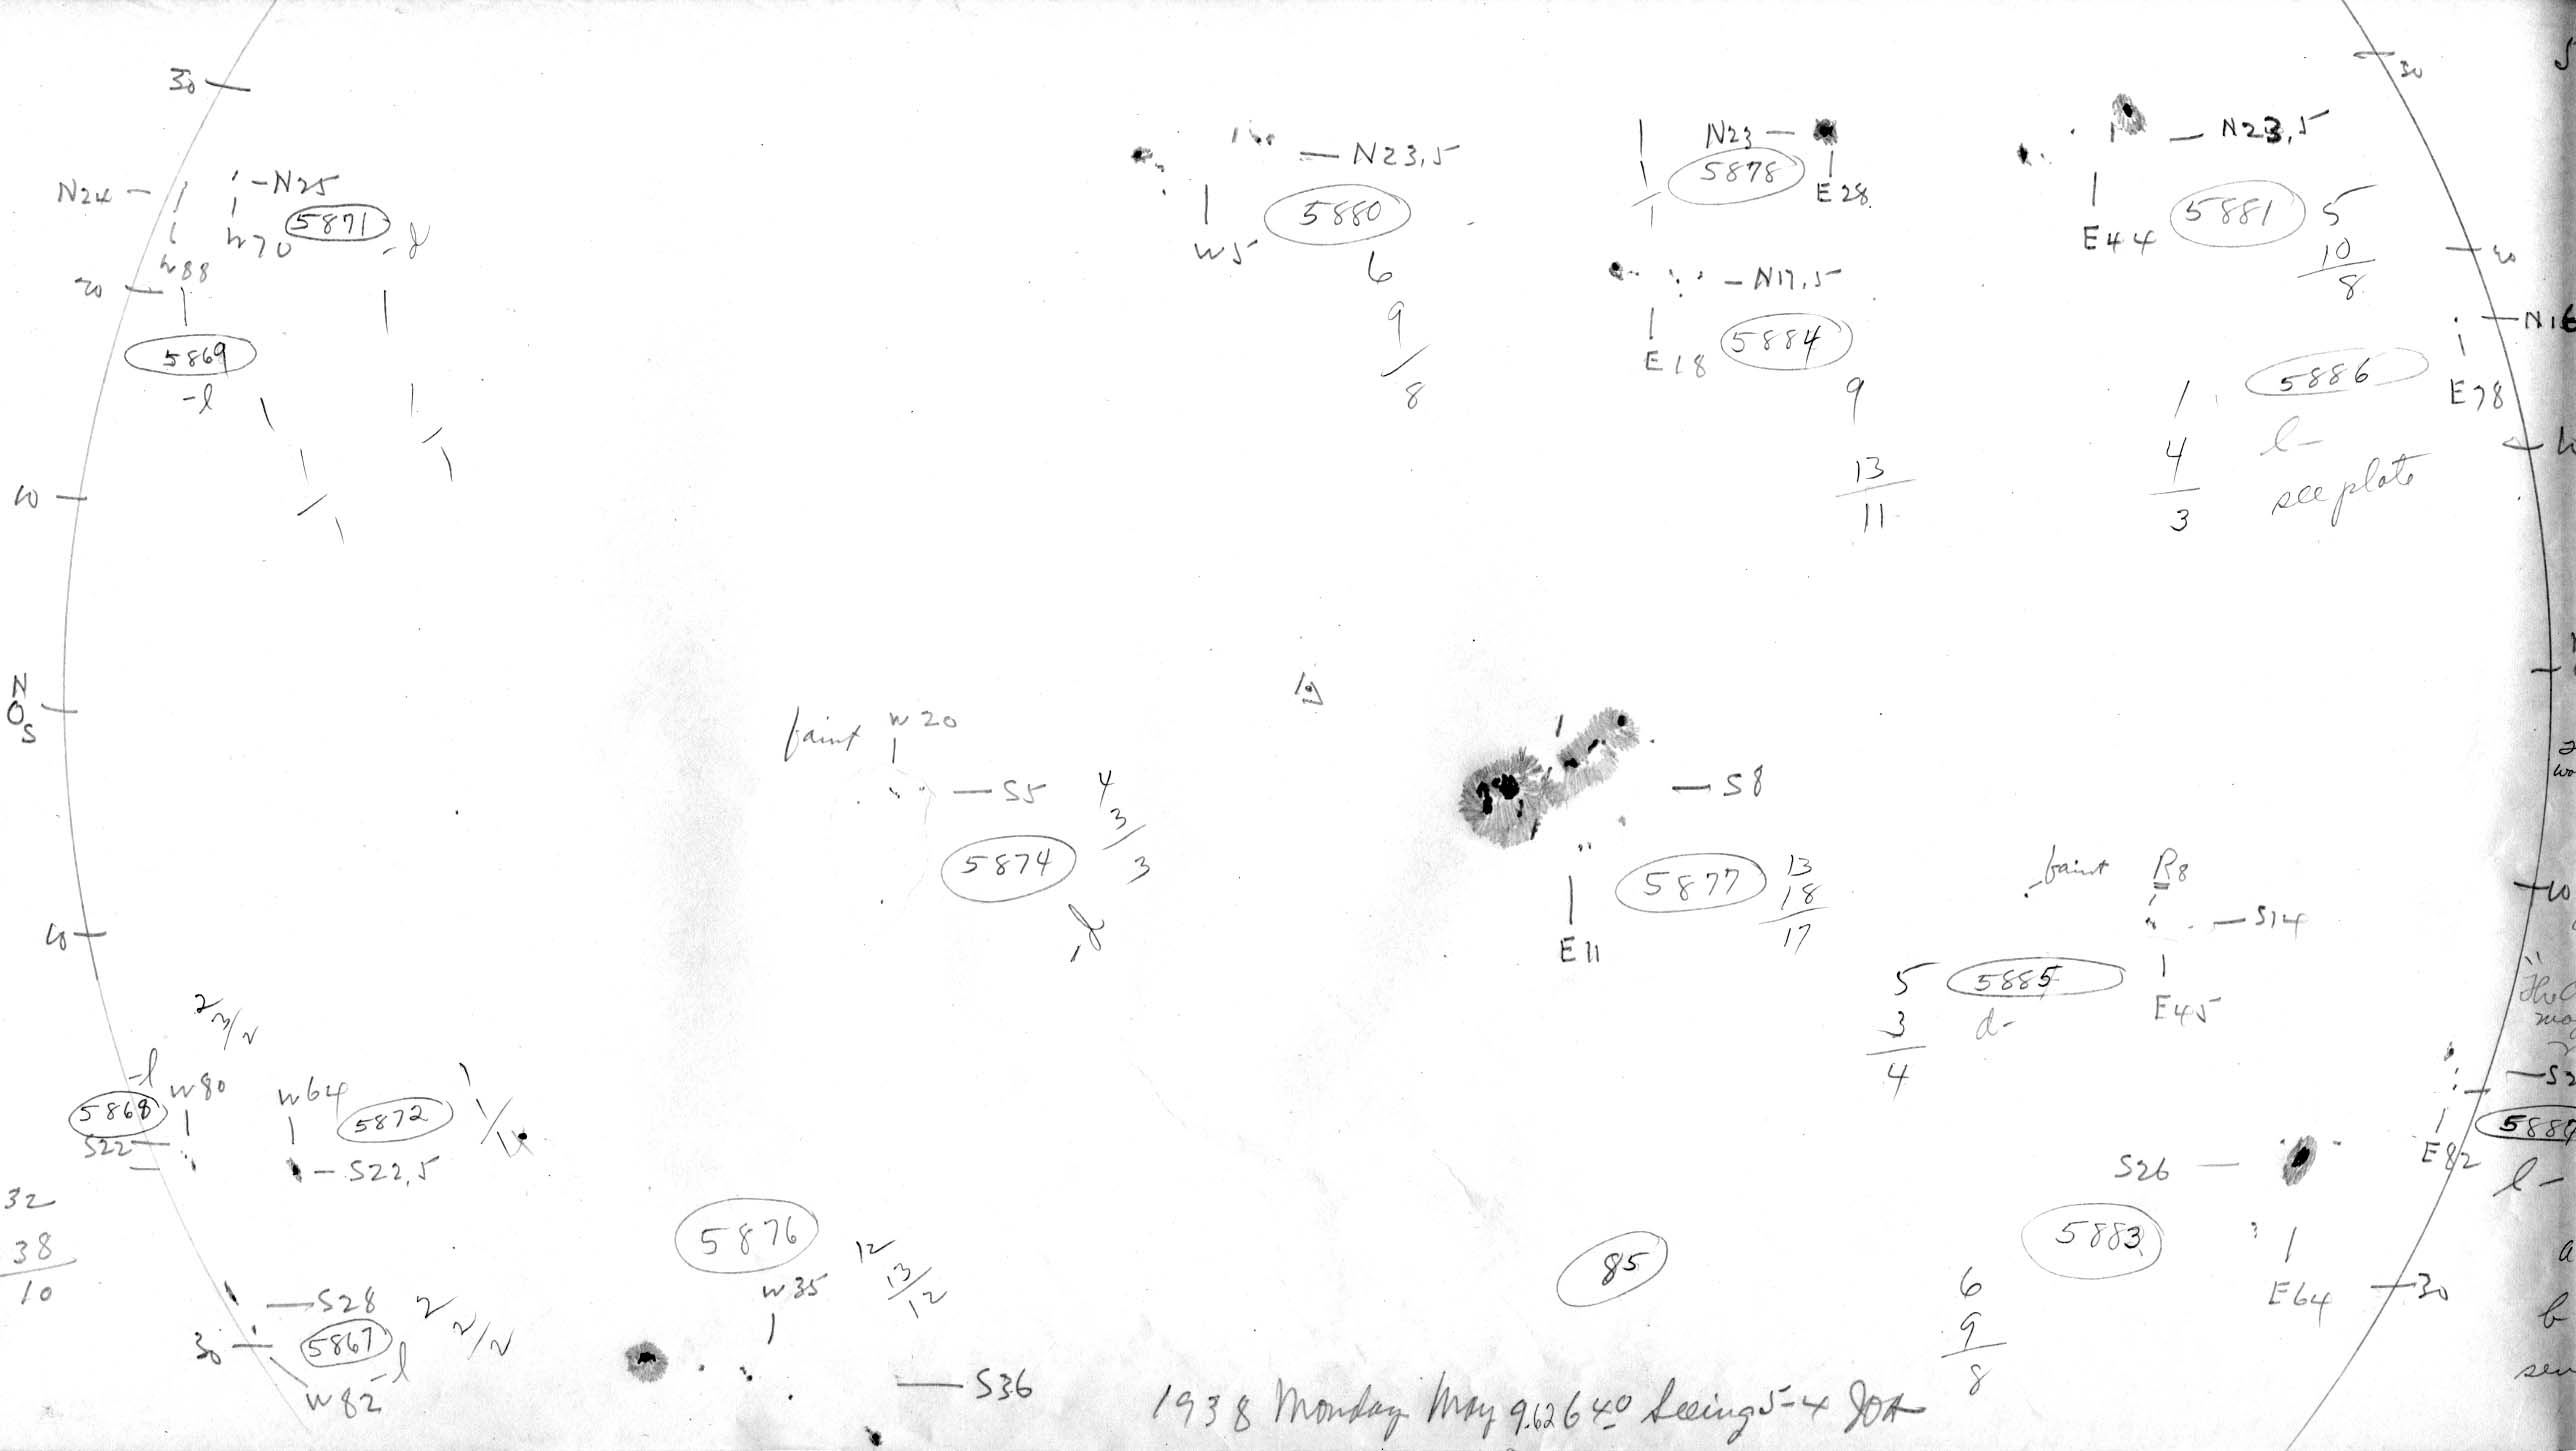 30
N24
N25
W70
5871
-d
W88
20
5869
-l
10
N
O
S
10
N23,5
W5
5880
6
9
8
N23
5878
E28
N17,5
E18
5884
9
13
11
N23,5
E44
5881
5
10
8
30
20
E78
5886
l-
see plate
1
4
3
faint W20
S5
4
3
3
5874
S8
E11
5877
13
18
17
faint R8
S14
E45
5885
d-
5
3
4
10
2
3/2
-l
W80
5868
S22
W64
5872
1
1/1
S22,5
32
38
10
S28
5867
-l
2
2/2
30
W82
5876
W35
12
13/12
S36
85
S26
5883
E64
6
9
8
E82
l-
30
1938 Monday May 9.626 40 Seeing 5-4